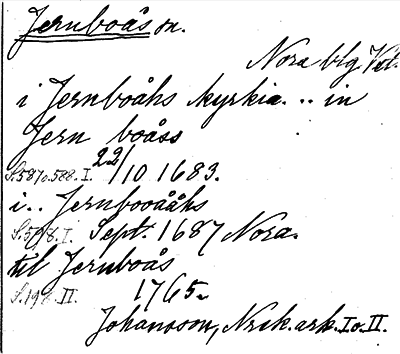 Jernboås sn.
Nora blg Vstl.
i Jernboåhs kyrkia... in
Jern boåss
S.587 o. 588. I. 22/10 1683.
i.. Jernbooååhs
S.598. I. Sept. 1687 Nora.
til Jernboås
S.198. II. 1765.
Johansson, Nrsk. ark. I o. II.